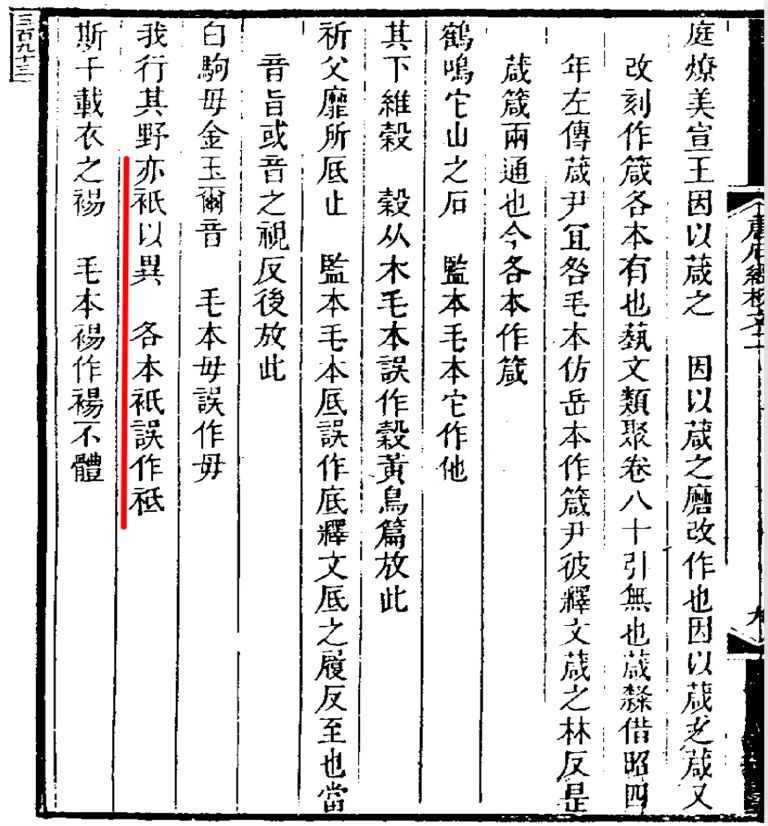 唐石經校文二
庭燎美宣王因以葴之　因以葴之磨改作也因以葴之葴又
改刻作箴各本有也藝文類聚卷八十引無也葴隸借昭四
年左傳葴尹宜咎毛本仿岳本作箴尹彼釋文葴之林反是
葴箴兩通也今各本作箴
鶴鳴它山之石　監本毛本它作他
其下維榖　榖从木毛本誤作穀黃鳥篇放此
祈父靡所厎止　監本毛本厎誤作底釋文厎之履反至也當
音旨或音之視反後放此
白駒毋金玉爾音　毛本毋誤作毋
我行其野亦衹以異　各本衹誤作祗
斯干載衣之裼　毛本裼作禓不體
三百九十三